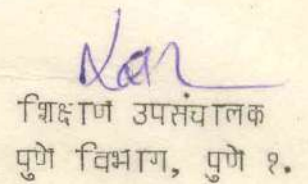 शिक्षण उपसंचालक
पुणे विभाग, पुणे १.